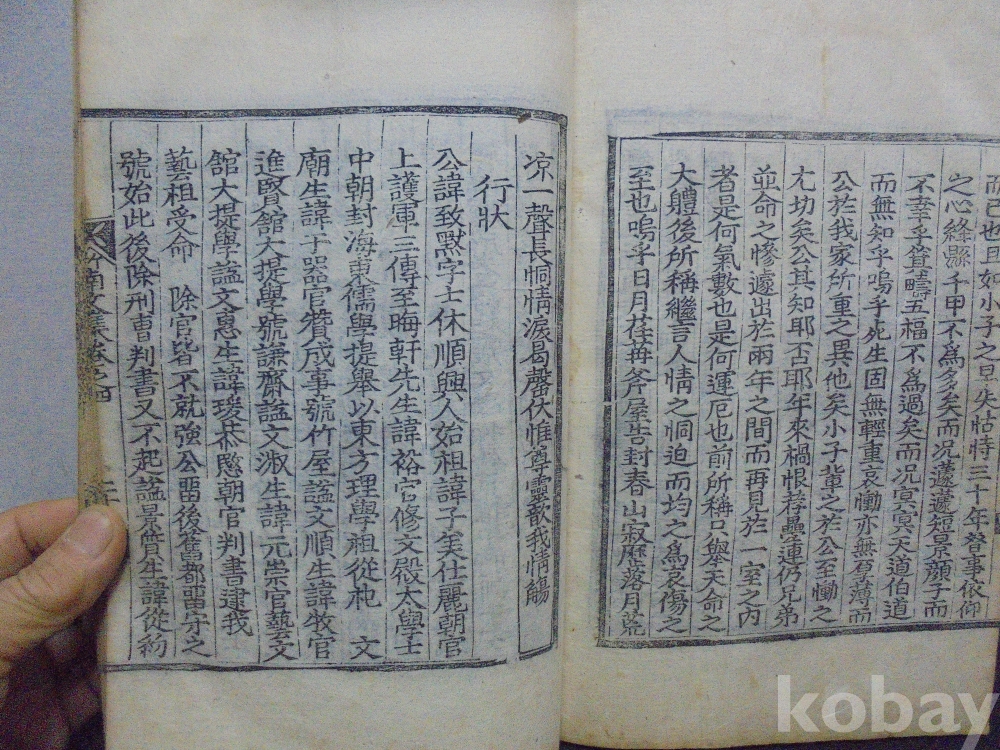 而已也且如小子之早失怙恃三十年瞽事依仰
之心絳縣千甲不爲多矣而況遽遽短景顏子而
不幸乎箕疇五福不爲過矣而況冥冥天道伯道
而無知乎嗚乎死生固無輕重哀慟亦無至薄而
公於我家所重之異他矣小子輩之於公至慟之
尤切矣公其知耶否耶年來禍恨荐疊連仍兄弟
並命之慘遽出於兩年之間而再見於一室之內
者是何氣數也是何運厄也前所稱只舉天命之
大體後所稱繼言人情之恫迫而均之爲哀傷之
至也嗚乎日月荏苒斧屋告封春山寂歷落月荒
凉一聲長慟情淚曷罄伏惟尊靈歆我情觴
行狀
公諱致默字士休順興人始祖諱子美仕麗朝官
上護軍三傳至晦軒先生諱裕官修文殿大學士
中朝封海東儒學提舉以東方理學祖從祀 文
廟生諱于器官贊成事號竹屋謚文順生諱牧官
進賢館大提學號謙齋謚文淑生諱元崇官藝文
館大提學謚文惠生諱瑗恭愍朝官判書逮我
藝祖受命 除官皆不就強公畱後舊都畱守之
號始此後除刑曹判書又不起謚景質生諱從約
南文集卷之四
kobay